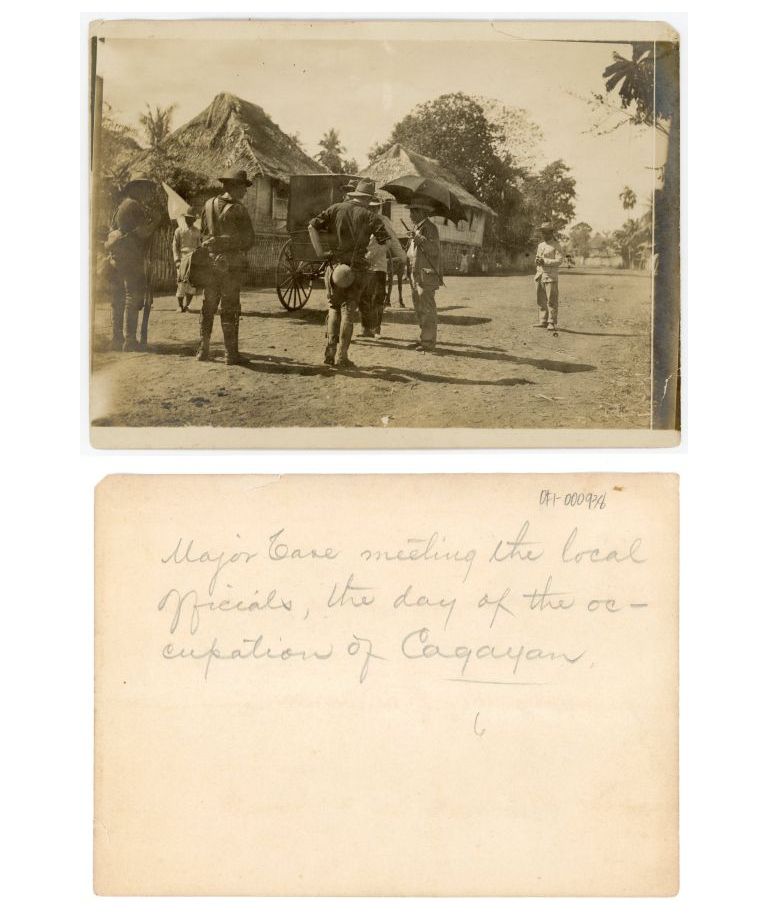 OP1-000938
Major Case meeting the local
officials, the day of the oc-
cupation of Cagayan.
6